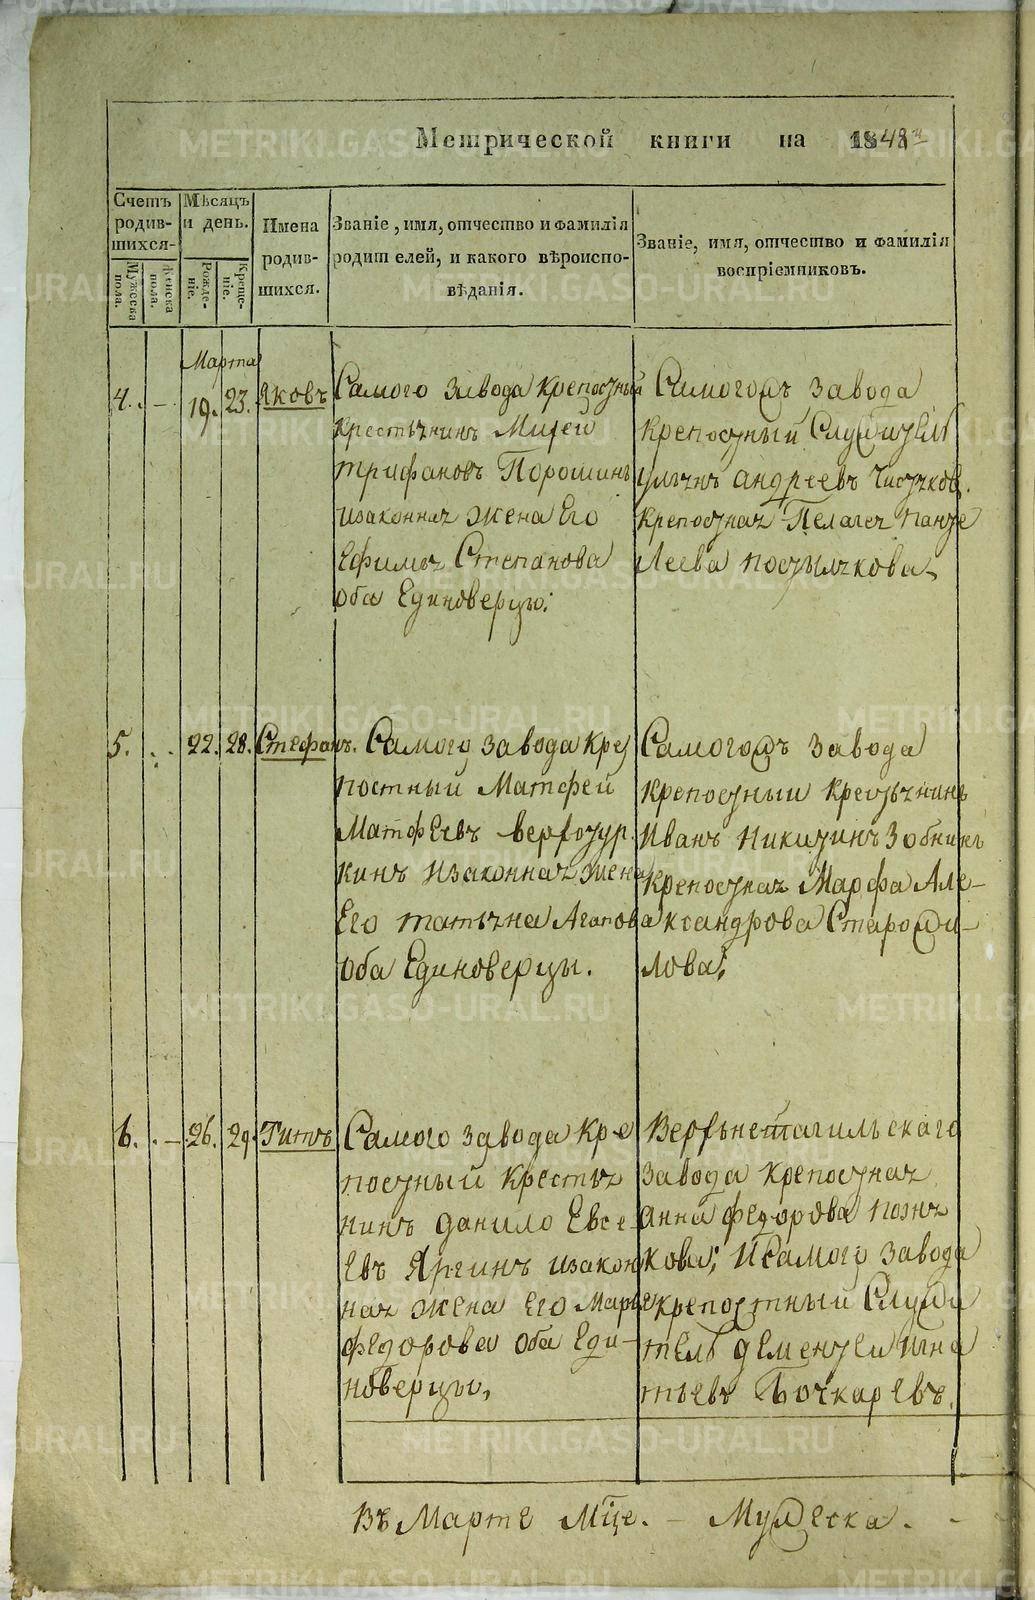 Метрической книги на 1848й
Счетъ родив-шихся.
Мужеска пола.
Женска пола.
Мѣсяцъ и день.
Рожде-ніе.
Креще-ніе.
Имена родив-шихся.
Званіе, имя, отчество и фамилія
родителей, и какого вѣроиспо-
вѣданія.
Званіе, имя, отчество и фамилія
воспріемниковъ.
Марта
4. – 19. 23. Яковъ
Самого завода крепосный
крестьянинъ
Трифановъ Порошинъ
изаконная жена Его
Ефимья Степанова
оба Единоверцы.
Самогожъ завода
крепосный Служитель
Андреевъ
крепосная Пелагея Панте
леева Посылкова
5. 22. 28. Стефанъ.
Самого завода кре
постный Матфей
Матфеевъ Верхотур
кинъ изаконная жена
Его татьяна Агапова
оба Единоверцы.
Самогожъ завода
крепосный крестьянинъ
Иванъ Никитинъ Зобнинъ
крепосная Марфа Але-
ксандрова Старожи-
лова;
6. – 26. 29. Титъ
Самого завода кре
посный крестья
нинъ данило Евсе
евъ Яргинъ изакон
ная жена Его Марья
федорова оба Еди-
новерцы,
Верхънетагильскаго
завода крепосная
Анна федорова Позня
кова; Исамого завода
крепостный Служи
тель дементеи Игна
тьевъ Бочкаревъ.
Въ Марте Мце. – Мужеска. -
METRIKI.GASO-URAL.RU